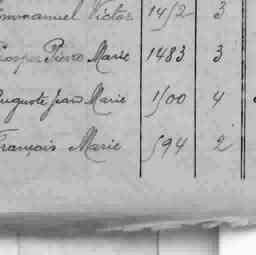 Emmanuel Victor 1452 3
Prosper Pierre Marie 1483 3
Auguste Jean Marie 1500 4
François Marie 594 2